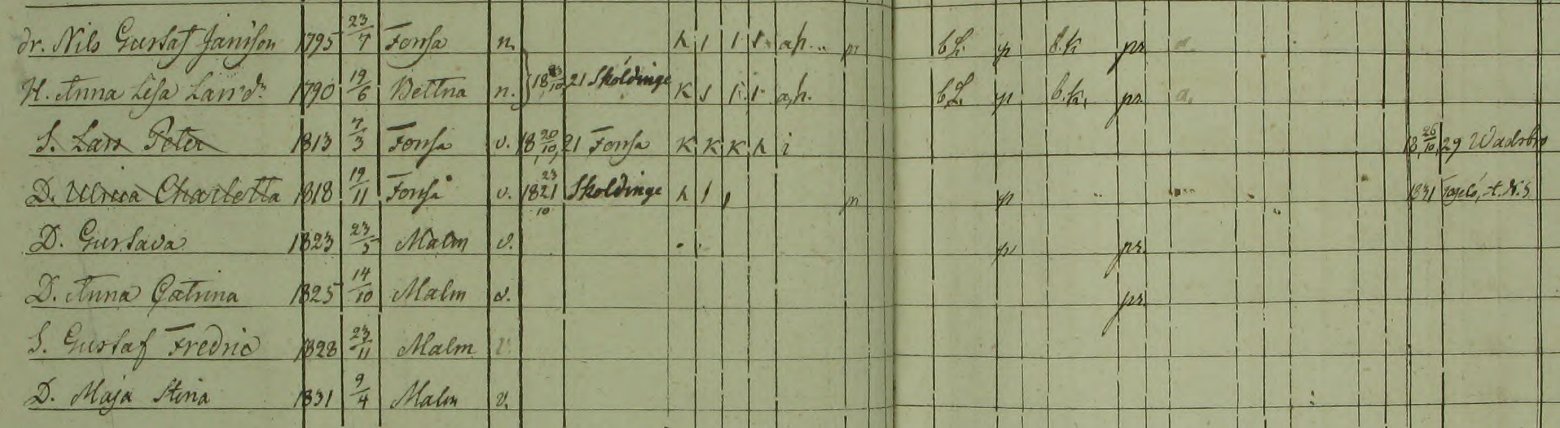 dr. Nils Gustaf Jansson 1795 23/7 Forssa n. h 1 1 1 ah. p b.L. p b.k pr. a.
H. Anna Lisa Larsdr 1790 19/6 Bettna n. 18 23/10 21 Sköldinge k 1 1 1 a,h. b.L. p b.k. pr. a.
S. Lars Peter 1813 7/3 Forssa v. 18 20/10 21 Forssa k k k h i 18 26/10 29 Wadsbro
D. Ulrica Charlotta 1818 19/11 Forssa v. 18 23/10 21 Sköldinge h 1 , p p 1831
D. Gustava 1823 23/5 Malm v. p pr.
D. Anna Catrina 1825 14/10 Malm v. pr.
S. Gustaf Fredric 1828 23/11 Malm v.
D. Maja Stina 1831 9/4 Malm v.